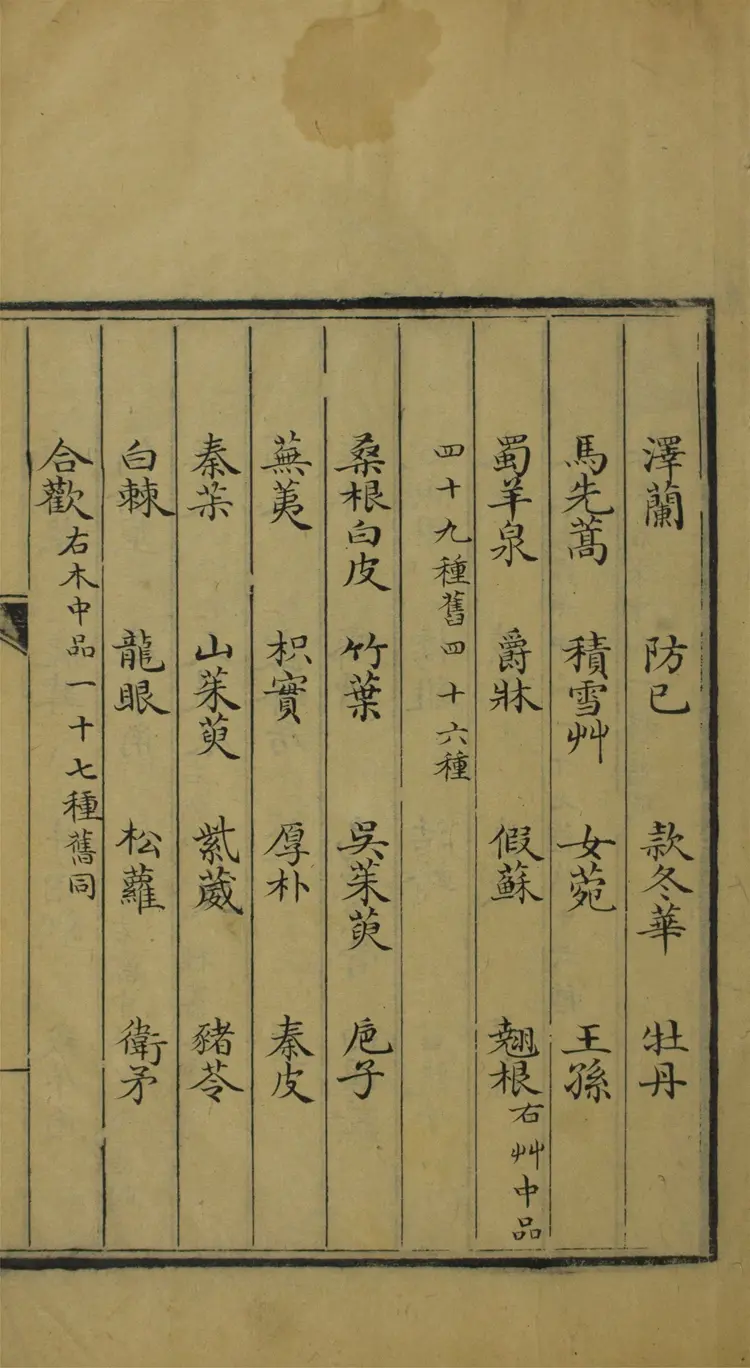 澤蘭 防已 款冬華 牡丹
馬先蒿 積雪艸 女菀 王孫
蜀羊泉 爵牀 假蘇 翹根 右艸中品
四十九種舊四十六種
桑根白皮 竹葉 吳茱萸 巵子
蕪荑 枳實 厚朴 秦皮
秦茮 山茱萸 紫葳 豬苓
白棘 龍眼 松蘿 衛矛
合歡 右木中品一十七種舊同